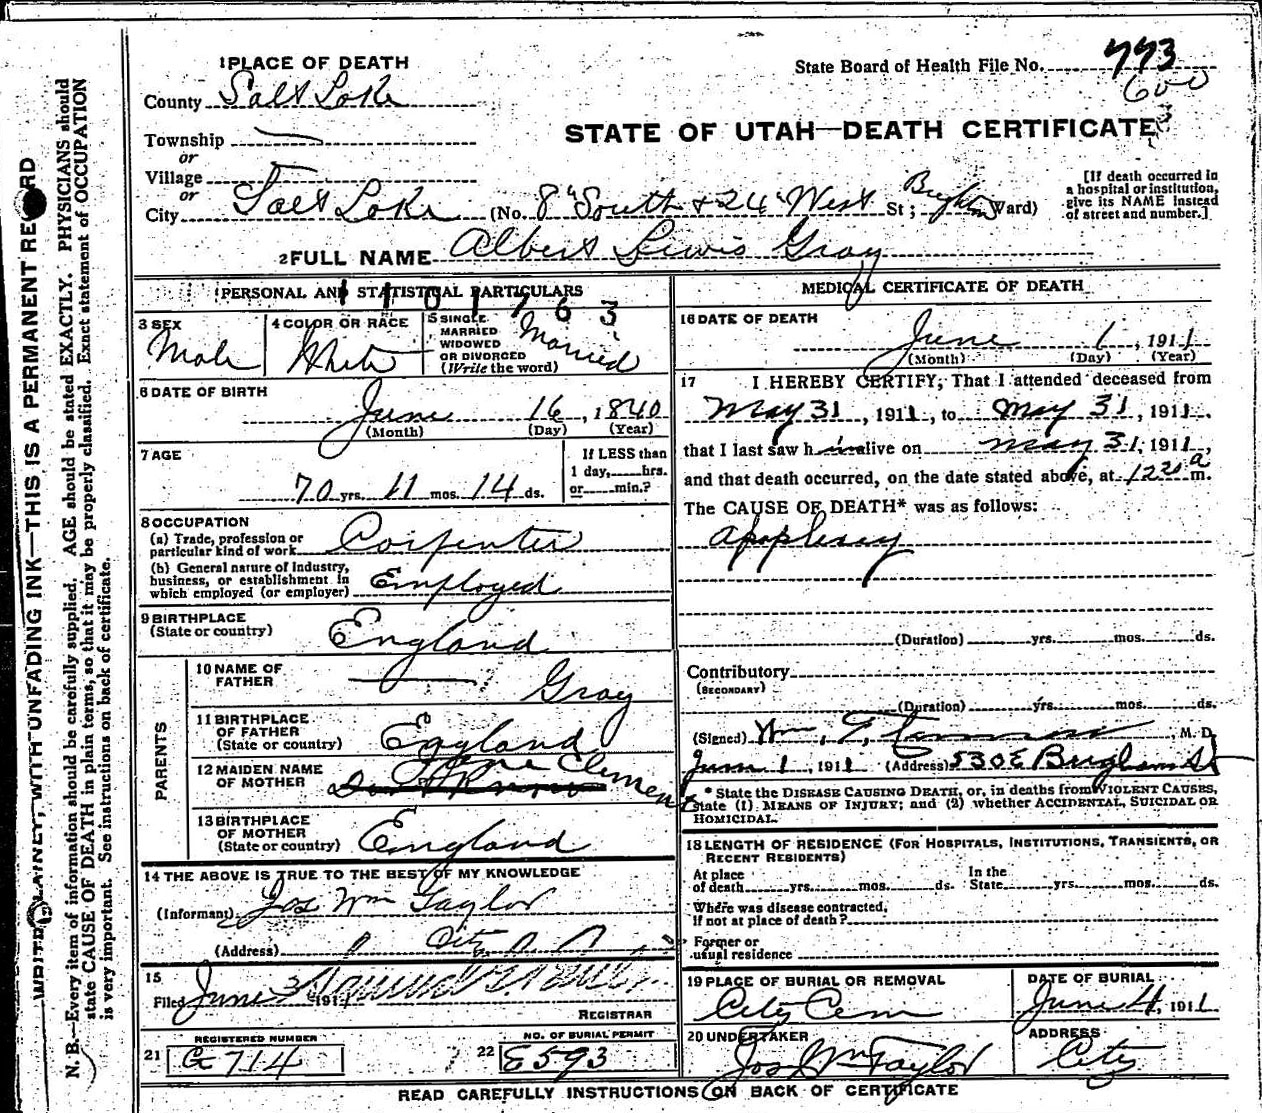 1 PLACE OF DEATH
State Board of Health File No. 773
600
County Salt Lake
STATE OF UTAH—DEATH CERTIFICATE
Township
or
Village
or
City Salt Lake (No. 8" South & 24" West St; Brighton Ward)
[If death occurred in a hospital or institution, give its NAME instead of street and number.]
2 FULL NAME Albert Lewis Gray
PERSONAL AND STATISTICAL PARTICULARS
1101763
3 SEX
Male
4 COLOR OR RACE
White
5 SINGLE
MARRIED
WIDOWED
OR DIVORCED
(Write the word)
Married
6 DATE OF BIRTH
June 16, 1840
(Month) (Day) (Year)
7 AGE
70 yrs. 11 mos. 14 ds.
If LESS than
1 day, hrs.
or min.?
8 OCCUPATION
(a) Trade, profession or
particular kind of work Carpenter
(b) General nature of Industry,
business, or establishment in
which employed (or employer) Employed
9 BIRTHPLACE
(State or country) England
PARENTS
10 NAME OF
FATHER Gray
11 BIRTHPLACE
OF FATHER
(State or country) England
12 MAIDEN NAME
OF MOTHER Clement
13 BIRTHPLACE
OF MOTHER
(State or country) England
14 THE ABOVE IS TRUE TO THE BEST OF MY KNOWLEDGE
(Informant) Jos Wm Taylor
(Address) City
15
Filed June 3 1911
REGISTRAR
REGISTERED NUMBER
21 G 714
NO. OF BURIAL PERMIT
22 E 593
MEDICAL CERTIFICATE OF DEATH
16 DATE OF DEATH
June 1, 1911
(Month) (Day) (Year)
17 I HEREBY CERTIFY, That I attended deceased from
May 31, 1911, to May 31, 1911.
that I last saw h im alive on May 31, 1911,
and that death occurred, on the date stated above, at 12 20 a m.
The CAUSE OF DEATH* was as follows:
Applexy
(Duration) yrs. mos. ds.
Contributory
(SECONDARY)
(Duration) yrs. mos. ds.
(Signed) Wm. M. D.
June 1, 1911 (Address) 530 E Brigham St
* State the DISEASE CAUSING DEATH, or, in deaths from VIOLENT CAUSES,
state (1) MEANS OF INJURY; and (2) whether ACCIDENTAL, SUICIDAL OR
HOMICIDAL.
18 LENGTH OF RESIDENCE (FOR HOSPITALS, INSTITUTIONS, TRANSIENTS, OR
RECENT RESIDENTS)
At place
of death yrs. mos. ds. In the
State yrs. mos. ds.
Where was disease contracted,
if not at place of death?
Former or
usual residence
19 PLACE OF BURIAL OR REMOVAL
City Cem
DATE OF BURIAL
June 4, 1911
20 UNDERTAKER
Jos Wm Taylor
ADDRESS
City
READ CAREFULLY INSTRUCTIONS ON BACK OF CERTIFICATE
WRITE PLAINLY, WITH UNFADING INK—THIS IS A PERMANENT RECORD
N. B.—Every item of information should be carefully supplied. AGE should be stated EXACTLY. PHYSICIANS should
state CAUSE OF DEATH in plain terms, so that it may be properly classified. Exact statement of OCCUPATION
is very important. See instructions on back of certificate.